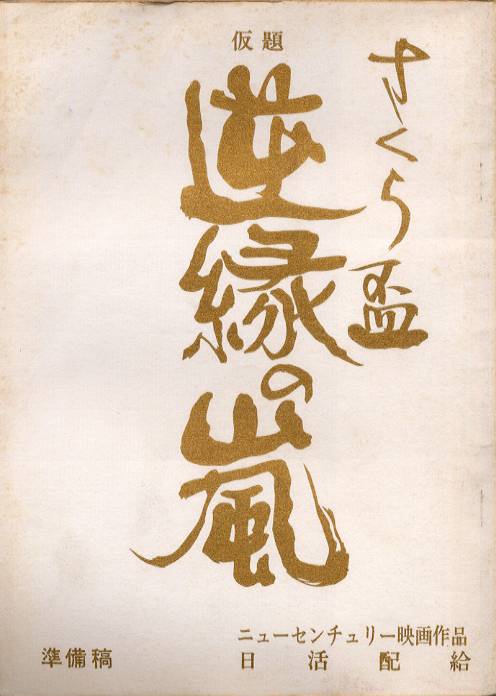 仮題
さくら盃
逆縁の嵐
ニューセンチュリー映画作品
日活配給
準備稿